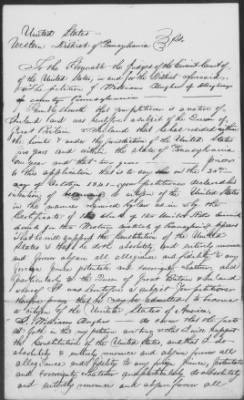 United States
Western District of Pennsylvania
To the Honorable the Judges of the Circuit Court of
of the United States, in and for the District aforesaid.
The petition of William of Allegheny
county Pennsylvania
Humbly sheweth that your petitioner is a native of
Ireland and was heretofore a subject of the Queen of
Great Britain & Ireland that he has resided within
the limits & under the jurisdiction of the United States
five years and within the State of Pennsylvania
one year and that two years previous
to this application that is to say on the 20th
day of October 1841 your petitioner declared his
intention of becoming a citizen of the United States
in the manner required by law as is by the
Certificate of the clerk of the United States Circuit
Court for the Western District of Pennsylvania appears
That he will support the Constitution of the United
States & that he doth absolutely and entirely renounce
and forever abjure all allegiance and fidelity to any
foreign prince potentate and sovereignty whatever and
particularly to the Queen of Great Britain and Ireland
of whom he was heretofore a subject Your petitioner
therefore prays that he may be admitted to become
a citizen of the United States of America
I, William do swear that the facts
set forth in the my petition are true & will support
the Constitution of the United States, and that I do
absolutely & entirely renounce and abjure forever all
allegiance and fidelity to any foreign Prince, potentate
and sovereignty whatever and particularly do absolutely
and entirely renounce and abjure forever all